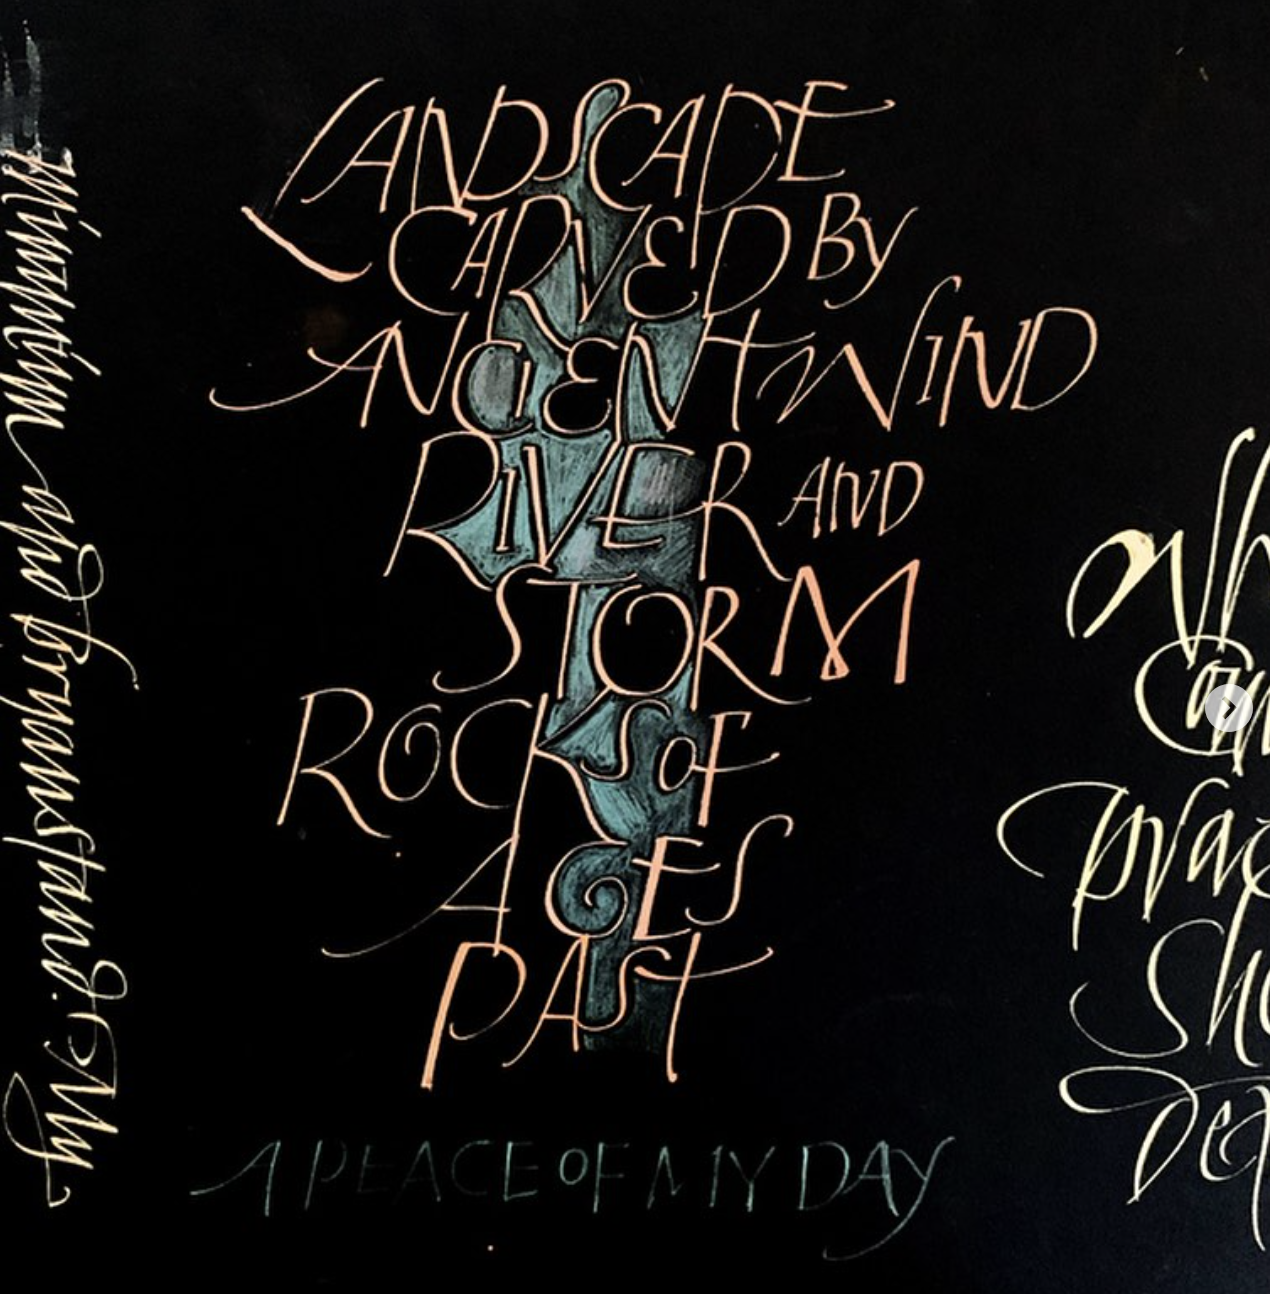 LANDSCAPE
CARVED BY
ANCIENT WIND
RIVER AND
STORM
ROCKS OF
AGES
PAST
A PEACE OF MY DAY
Minimum and
My
Wh
Can
prac
She